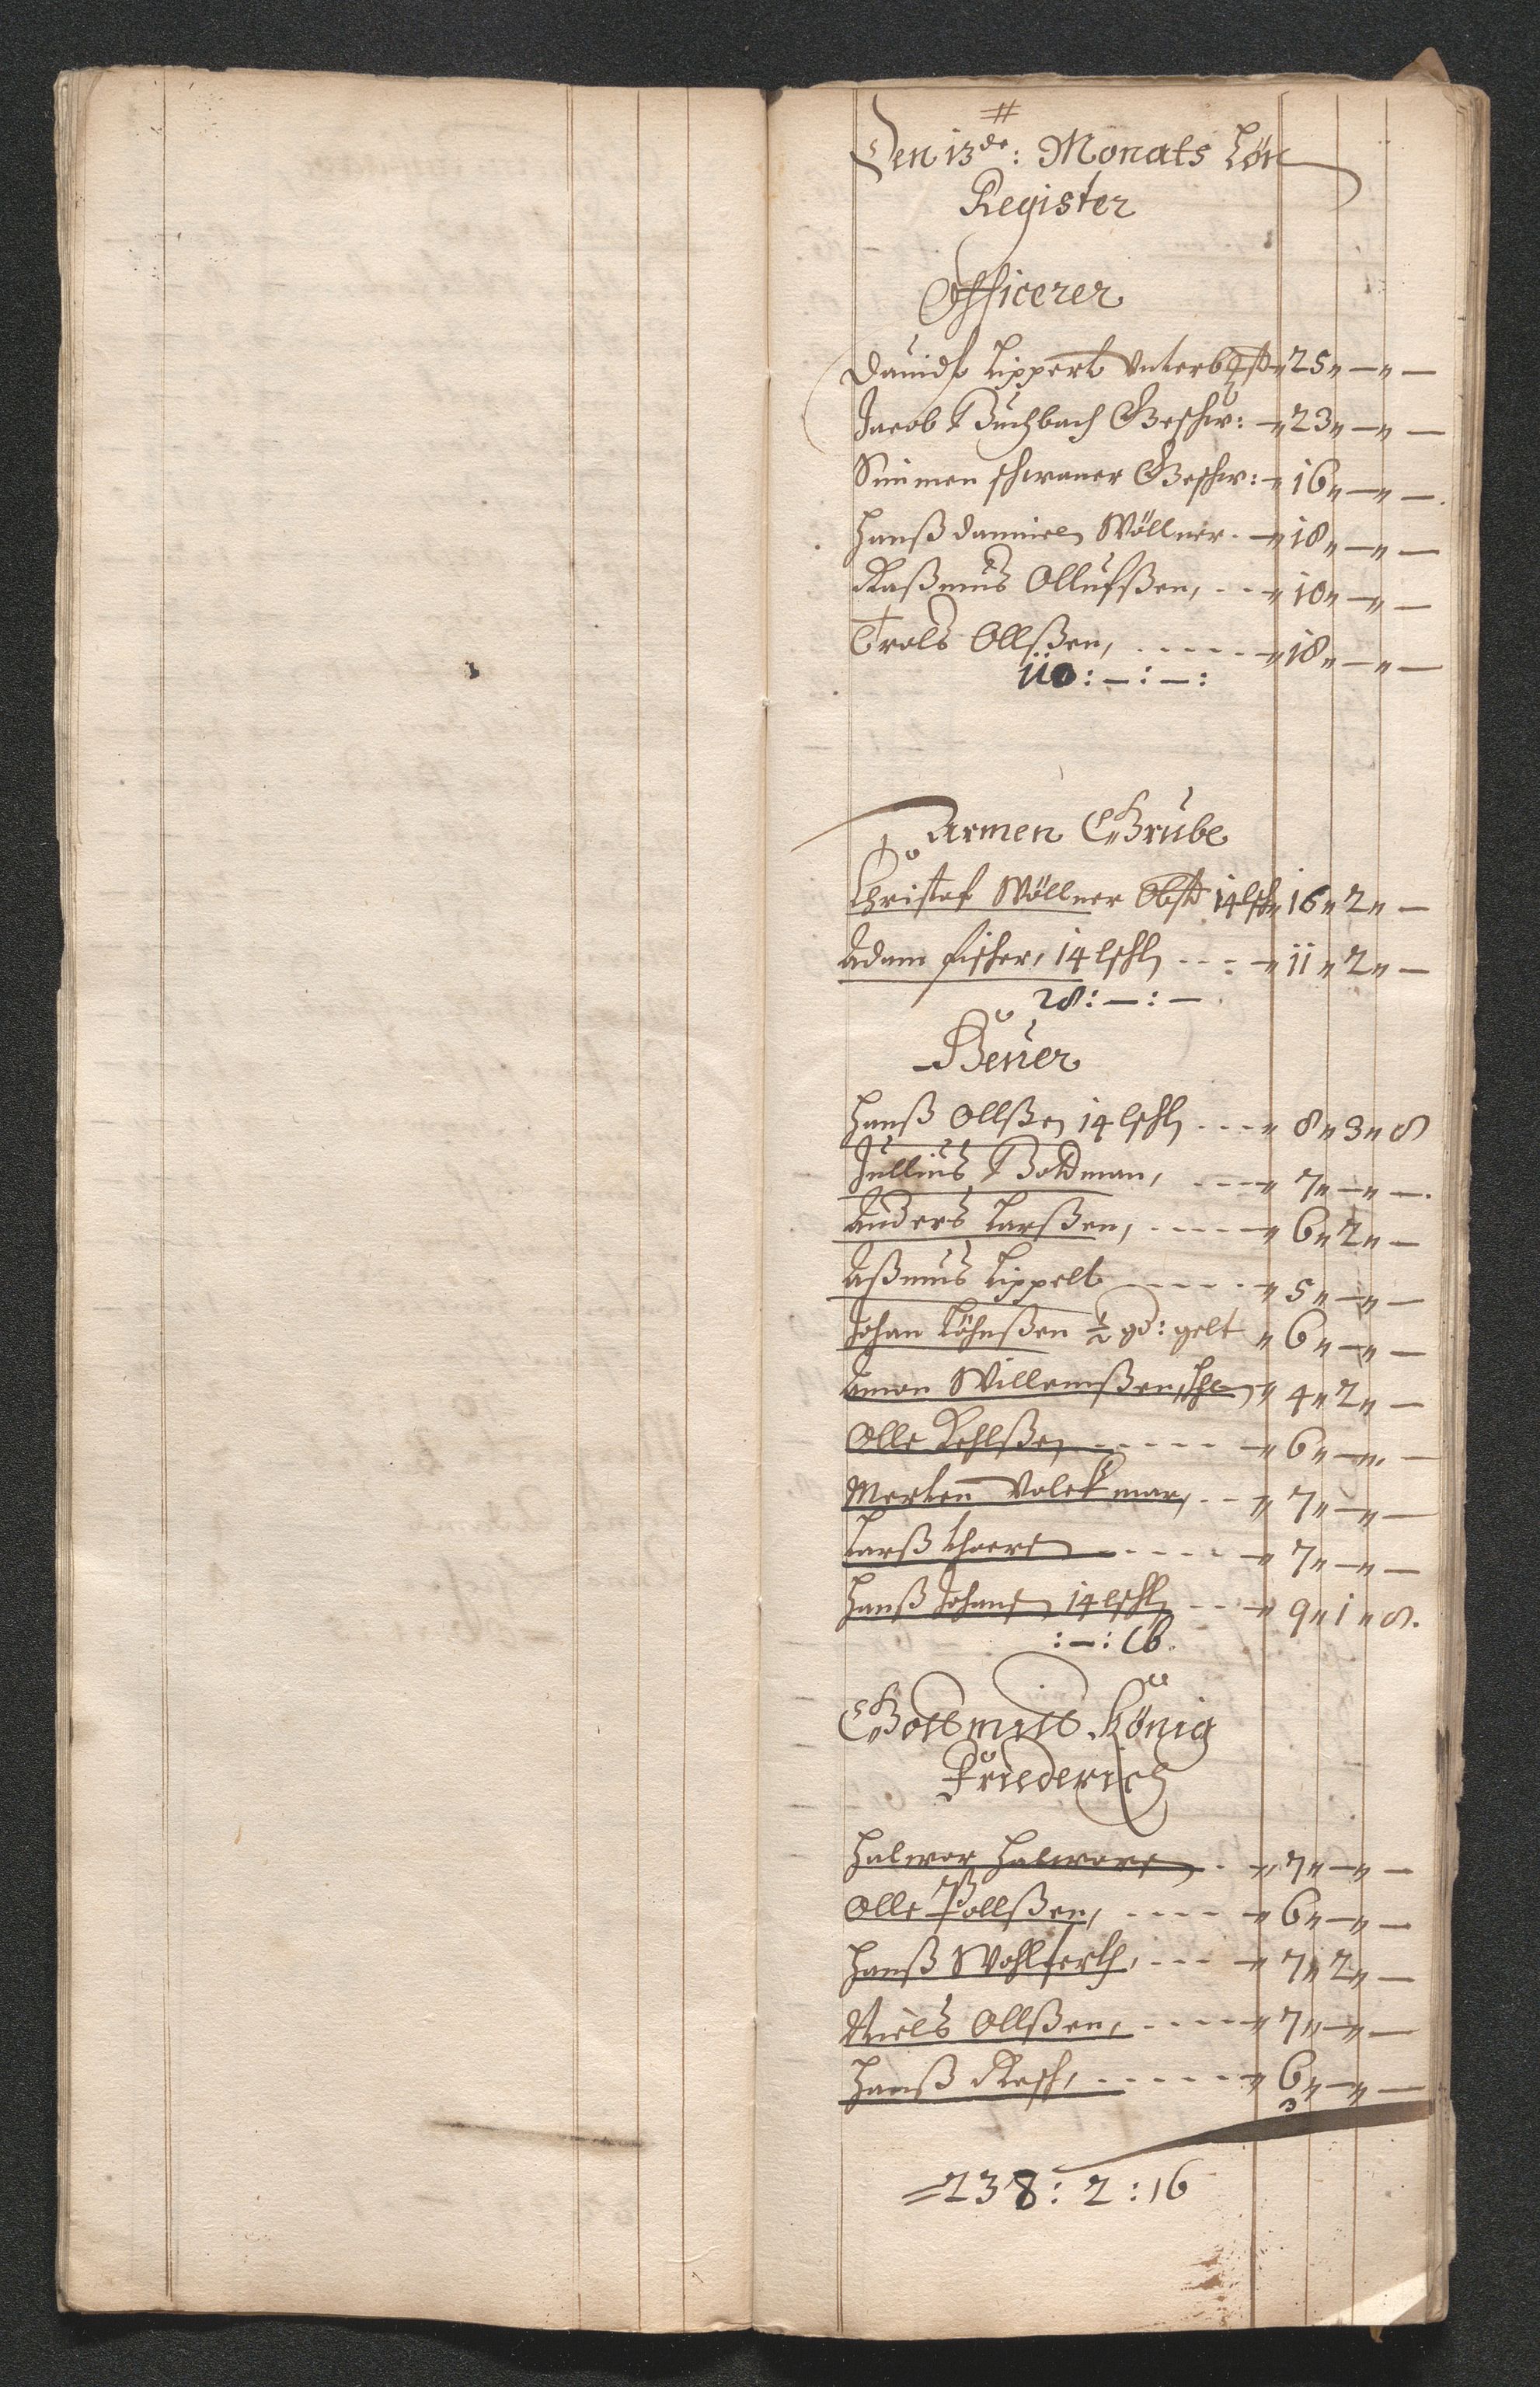 #
Den 13de: Monats Lön
Register
Officerer
Davidt Lippert Unterbgst " 25 " — " —
Jacob Buchbach Geschw: — " 23 " — " —
Simmen schwaner Geschw: — " 16 " — " —
Hanß Danniel Wöllner — " 18 " — " —
Raßmus Ollufßen, - - — " 10 " — " —
Trols Ollßen, - - - - - — " 18 " — " —
110 : — : — :
Armen Grube
Christof Wöllner Obst 14 lschl " 16 " 2 " —
Adam Fischer, 14 lschl - - : — " 11 " 2 " —
28 : — : —
Heuer
Hanß Ollßen 14 lschl - - - " 8 " 3 " 8
Jullius Boldman, - - — " 7 " — " —
Anders Larßen, - - - - — " 6 " 2 " —
Aßmus Lippelt - - - - " 5 " — " —
Johan Köhnßen ½ gd: gelt " 6 " — " —
Amon Willemßen, " 4 " 2 " —
Olle Kehlßen - - - - — " 6 " — " —
Merten Volckmar, - - " 7 " — " —
Larß - - - - — " 7 " — " —
Hanß Johanß 14 lschl - - — " 9 " 1 " 8
: — : 16.
Gottes mitt König
Friederich
Halwor Halworß - — " 7 " — " —
Olle Pollßen, - - - - — " 6 " — " —
Hanß Wohlferth, - - - — " 7 " 2 " —
Niels Ollßen, - - - - — " 7 " — " —
Hanß Resch, - - - - - — " 6 " — " —
3
=238 : 2 : 16